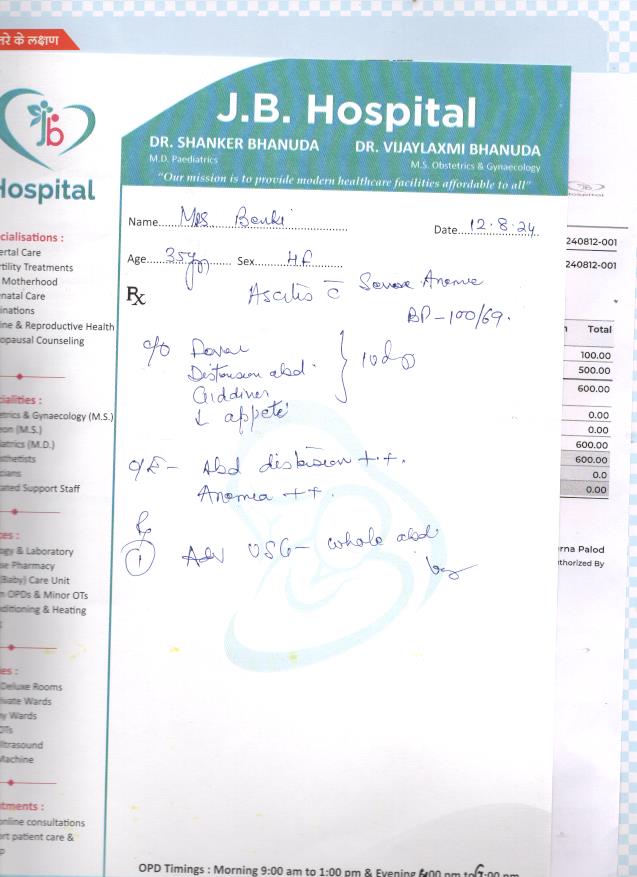 तरे के लक्षण
jb
Hospital
J.B. Hospital
DR. SHANKER BHANUDA
M.D. Paediatrics
DR. VIJAYLAXMI BHANUDA
M.S. Obstetrics & Gynaecology
"Our mission is to provide modern healthcare facilities affordable to all"
Name Mrs Date 12.8.24
Age 35 Sex
Rx
Ascitis c̄ Severe
BP - 100/69.
c/o
Distension abd.
Giddines
↓ appete
10
O/E - Abd distension ++.
Anemea ++.
Rx
1 Adv USG - whole abd
cialisations :
ertal Care
rtility Treatments
Motherhood
natal Care
inations
ine & Reproductive Health
opausal Counseling
ialities :
etrics & Gynaecology (M.S.)
eon (M.S.)
iatrics (M.D.)
sthetists
cians
ated Support Staff
ces :
ogy & Laboratory
se Pharmacy
(Baby) Care Unit
n OPDs & Minor OTs
nditioning & Heating
ies :
Deluxe Rooms
ivate Wards
y Wards
OTs
ltrasound
Machine
tments :
online consultations
ort patient care &
p
240812-001
240812-001
Total
100.00
500.00
600.00
0.00
0.00
600.00
600.00
0.0
0.00
rna Palod
thorized By
OPD Timings : Morning 9:00 am to 1:00 pm & Evening :00 pm to :00 pm